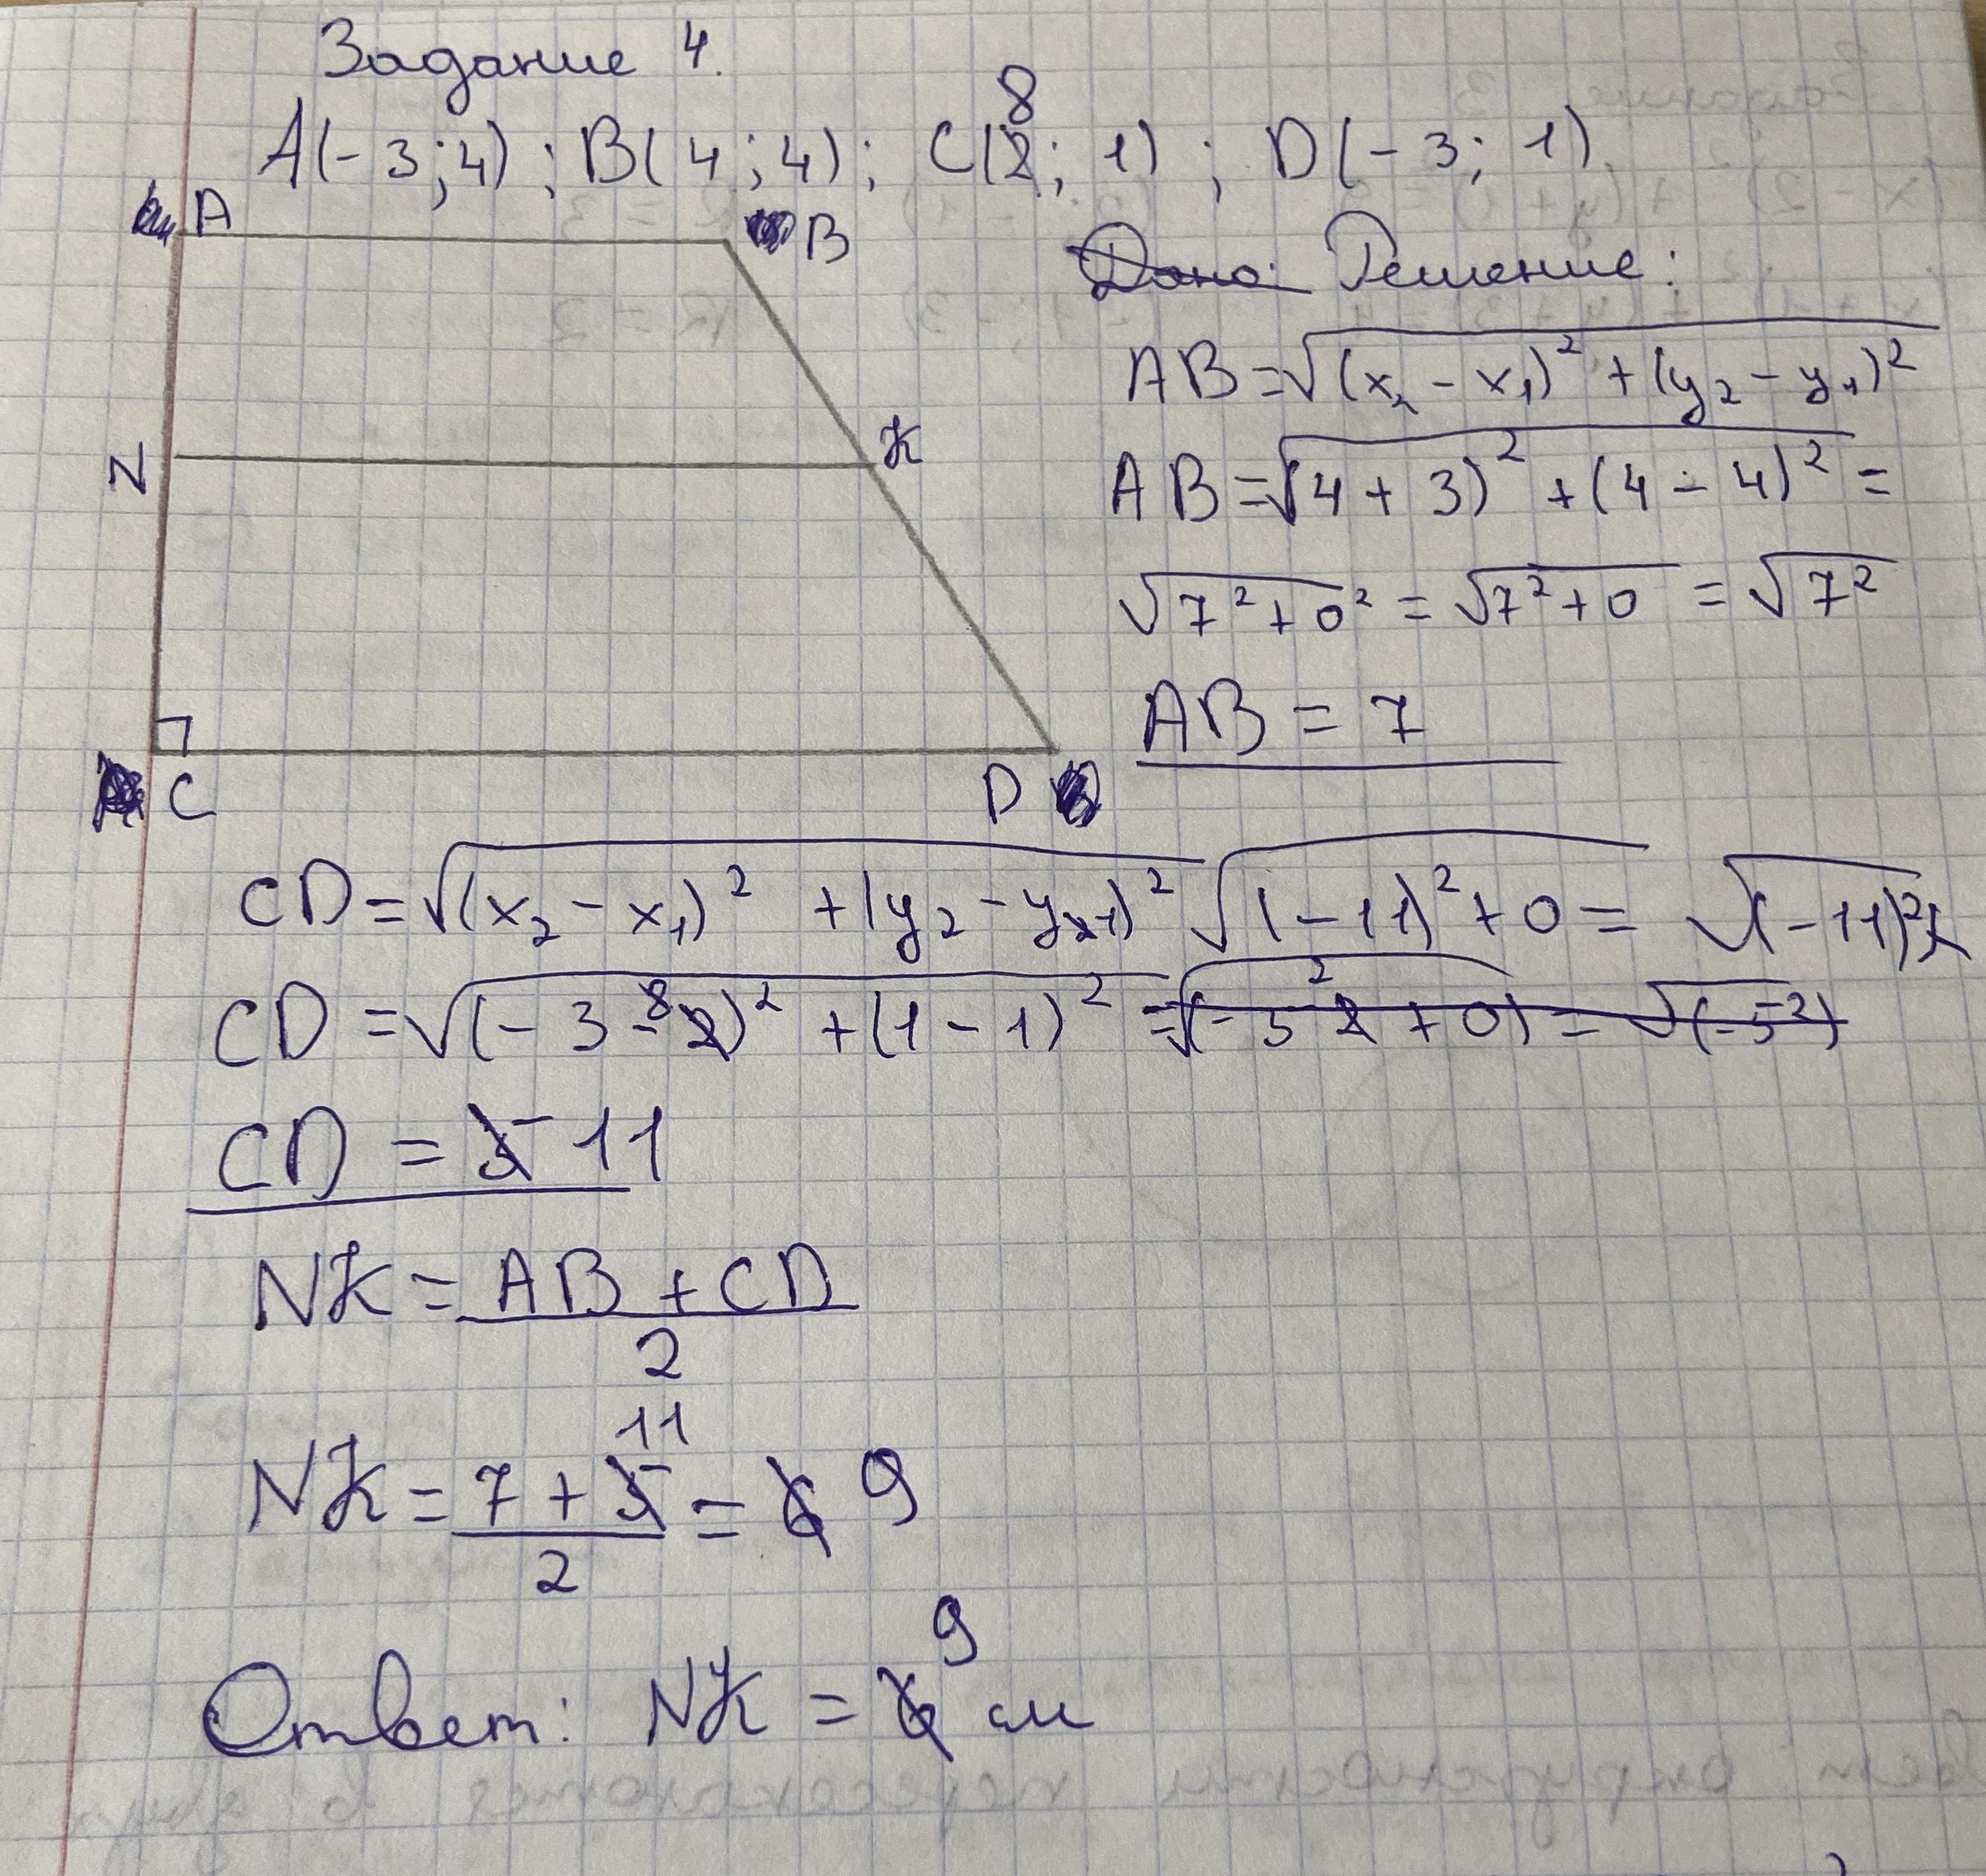 Задание 4.
A(-3;4) ; B(4;4); C(8; 1) ; D(-3; 1)
A B
Решение:
AB=√(x₂ - x₁)² + (y₂ - y₁)²
N K
AB=√(4 + 3)² + (4 - 4)² =
√7² + 0² = √7² + 0 = √7²
AB = 7
C D
CD=√(x₂ - x₁)² + (y₂ - y₁)² √(-11)² + 0 = √(-11)²
CD =√(-3 - 8)² + (1 - 1)² =
CD = 11
NK = AB + CD
2
NK = 7 + 11 = 9
2
Ответ: NK = 9 см